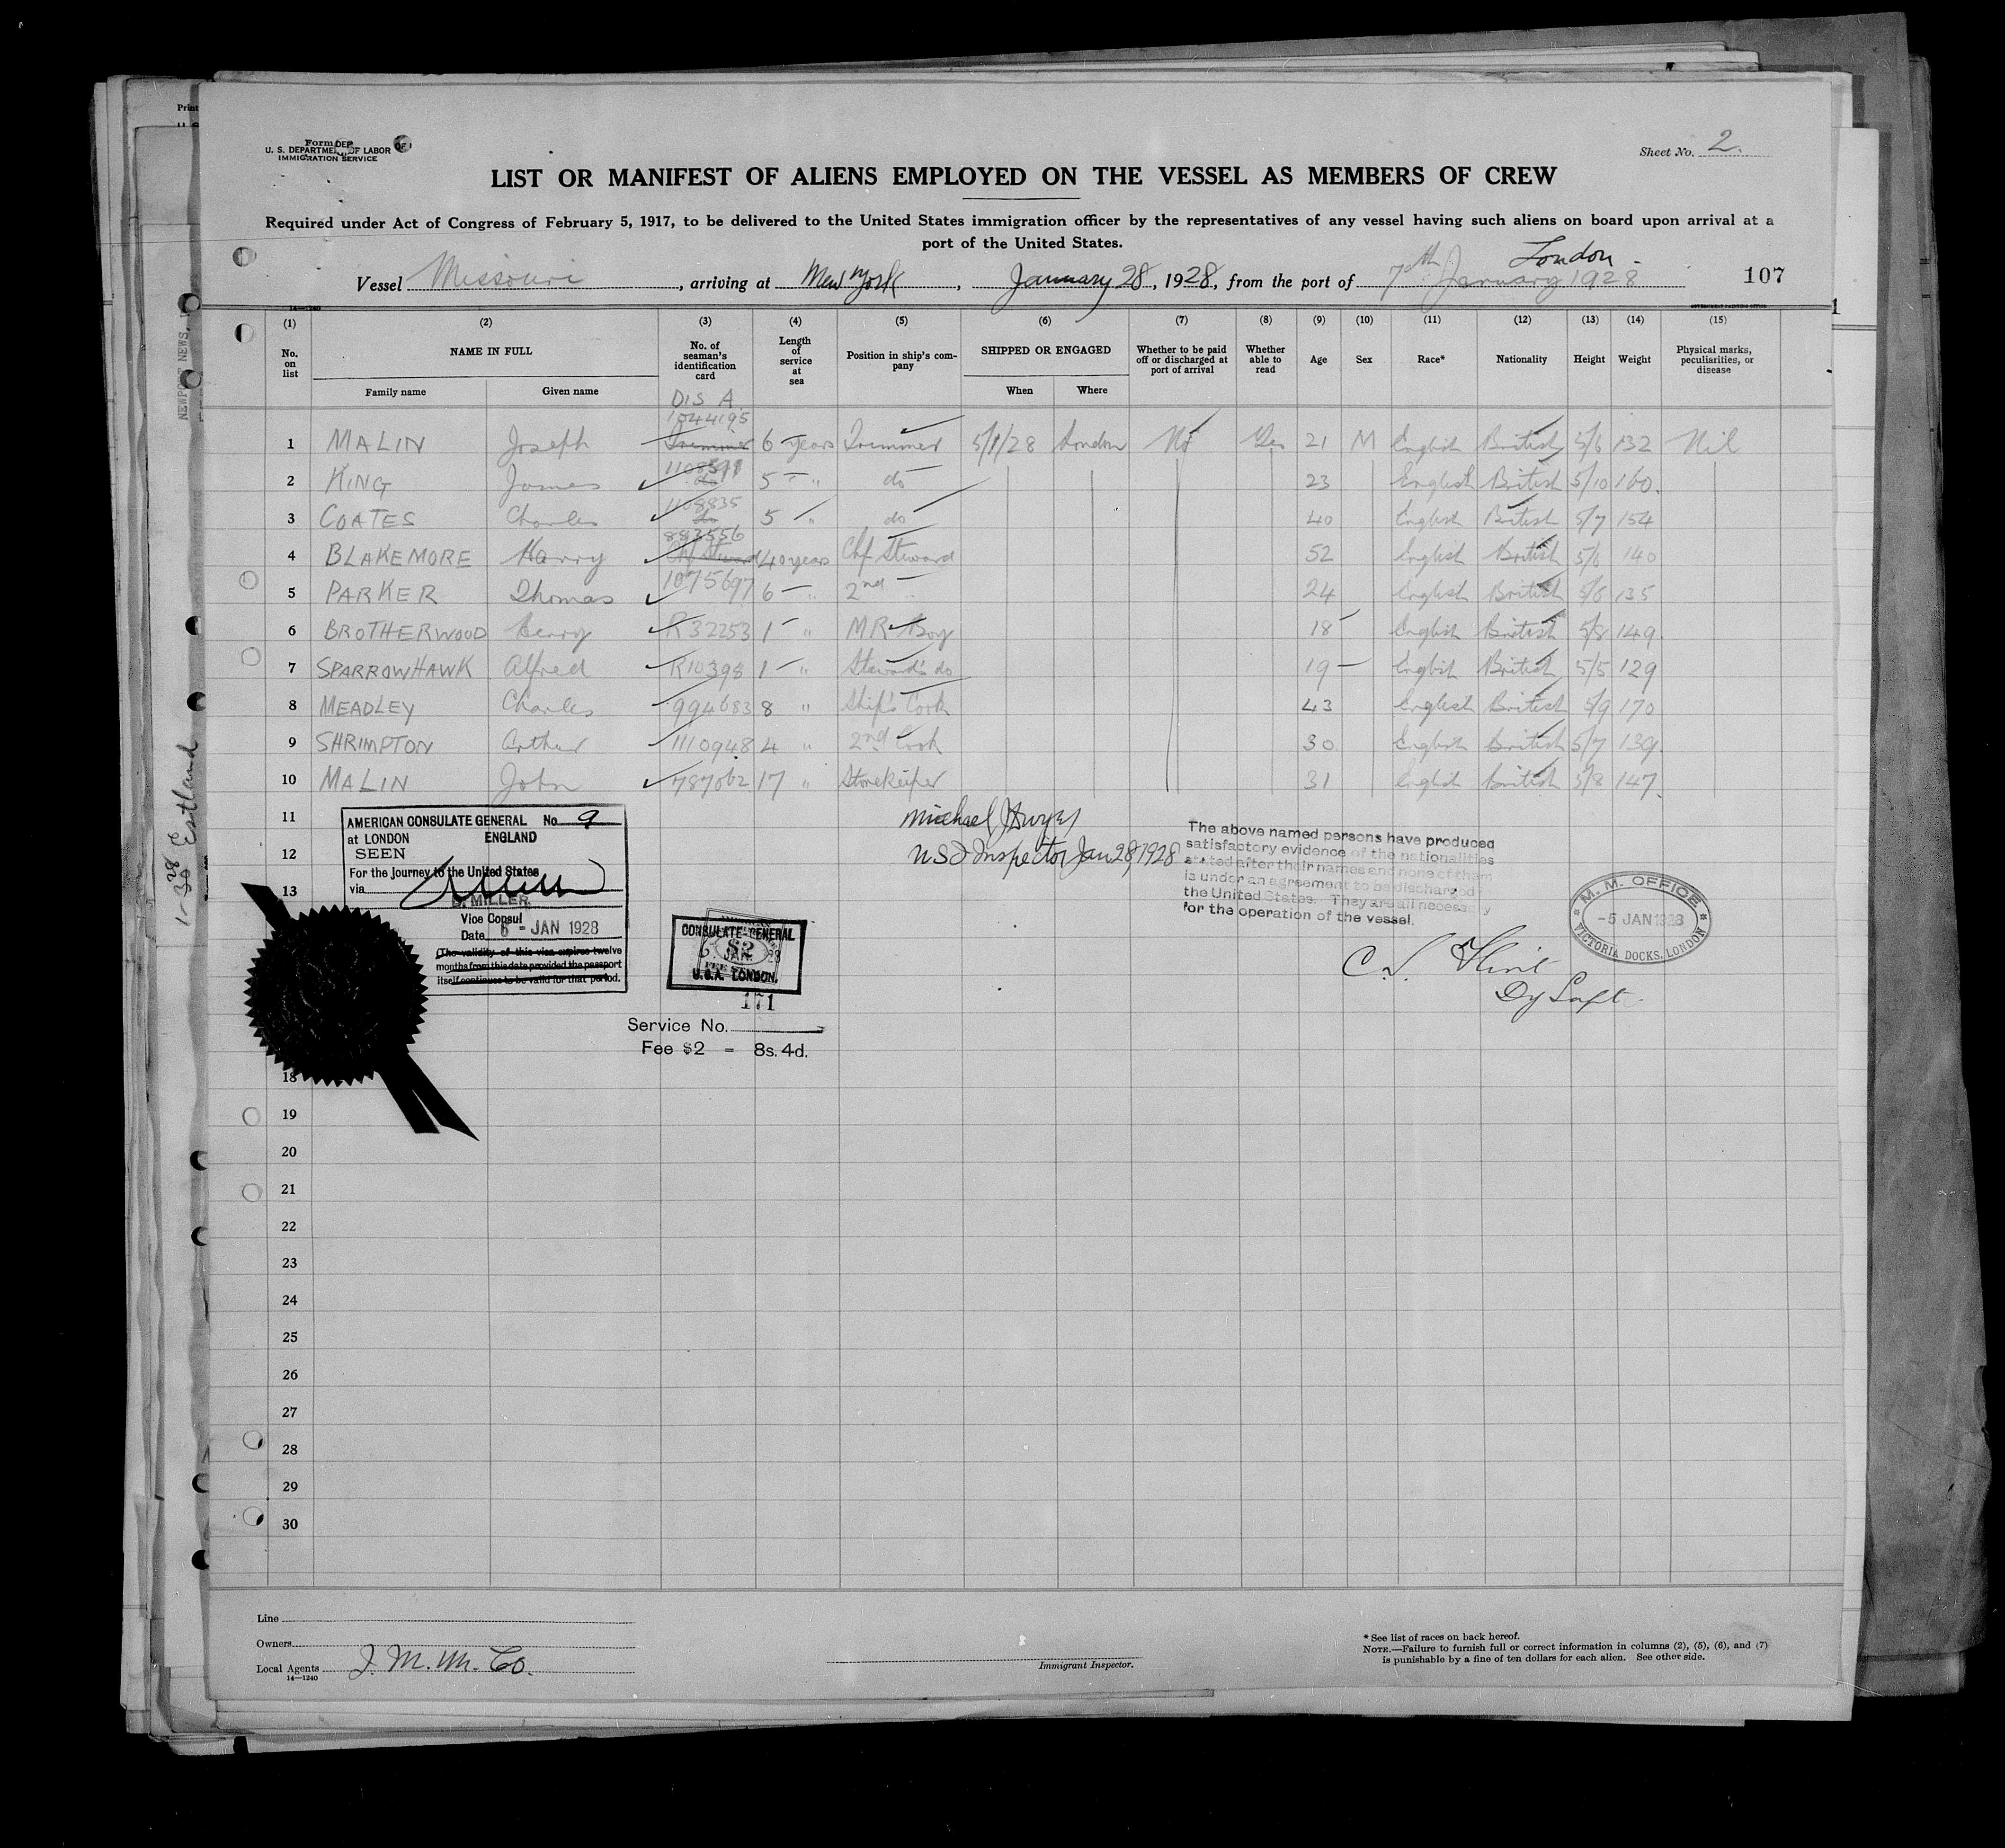 Form DEP
U. S. DEPARTMENT OF LABOR
IMMIGRATION SERVICE
Sheet No. 2.
LIST OR MANIFEST OF ALIENS EMPLOYED ON THE VESSEL AS MEMBERS OF CREW
Required under Act of Congress of February 5, 1917, to be delivered to the United States immigration officer by the representatives of any vessel having such aliens on board upon arrival at a
port of the United States.
London
Vessel Missouri, arriving at New York, January 28, 1928, from the port of 7th January 1928 107
(1) (2) (3) (4) (5) (6) (7) (8) (9) (10) (11) (12) (13) (14) (15)
No. on list NAME IN FULL No. of seaman's identification card Length of service at sea Position in ship's company SHIPPED OR ENGAGED Whether to be paid off or discharged at port of arrival Whether able to read Age Sex Race* Nationality Height Weight Physical marks, peculiarities, or disease
Family name Given name When Where
DIS A
1 MALIN Joseph 1044195 Trimmer 6 years Trimmer 5/1/28 London No Yes 21 M English British 5/6 132 Nil
2 KING James do 5 " do 23 English British 5/10 160.
3 COATES Charles 1108835 do 5 " do 40 English British 5/7 154
4 BLAKEMORE Harry 883556 Chf Steward 40 years Chf Steward 52 English British 5/6 140
5 PARKER Thomas 1075697 6 " 2nd " 24 English British 5/6 135
6 BROTHERWOOD Henry R 32253 1 " M R Boy 18 English British 5/8 149.
7 SPARROWHAWK Alfred R10398 1 " Steward's do 19 English British 5/5 129
8 MEADLEY Charles 994683 8 " Ship's Cook 43 English British 5/9 170
9 SHRIMPTON Arthur 1110948 4 " 2nd Cook 30 English British 5/7 139.
10 MALIN John 787062 17 " Storekeeper 31 English British 5/8 147.
11
12
13
18
19
20
21
22
23
24
25
26
27
28
29
30
AMERICAN CONSULATE GENERAL No 9
at LONDON ENGLAND
SEEN
For the Journey to the United States
via
MILLER
Vice Consul
Date 6 - JAN 1928
(The validity of this visa expires twelve
months from this date provided the passport
itself continues to be valid for that period.
CONSULATE-GENERAL
$2
JAN.
U.S.A. LONDON.
171
Service No.
Fee $2 = 8s. 4d.
Michael Dwyer
U S I Inspector Jan 28, 1928
The above named persons have produced
satisfactory evidence of the nationalities
stated after their names and none of them
is under an agreement to be discharged
the United States. They are all necessary
for the operation of the vessel.
M. M. OFFICE
-5 JAN 1928
VICTORIA DOCKS, LONDON
Dy Supt.
Line
Owners
Local Agents I. M. M. Co.
14—1240
Immigrant Inspector.
* See list of races on back hereof.
NOTE.—Failure to furnish full or correct information in columns (2), (5), (6), and (7)
is punishable by a fine of ten dollars for each alien. See other side.
NEWPORT NEWS,
1-30-28 Estland